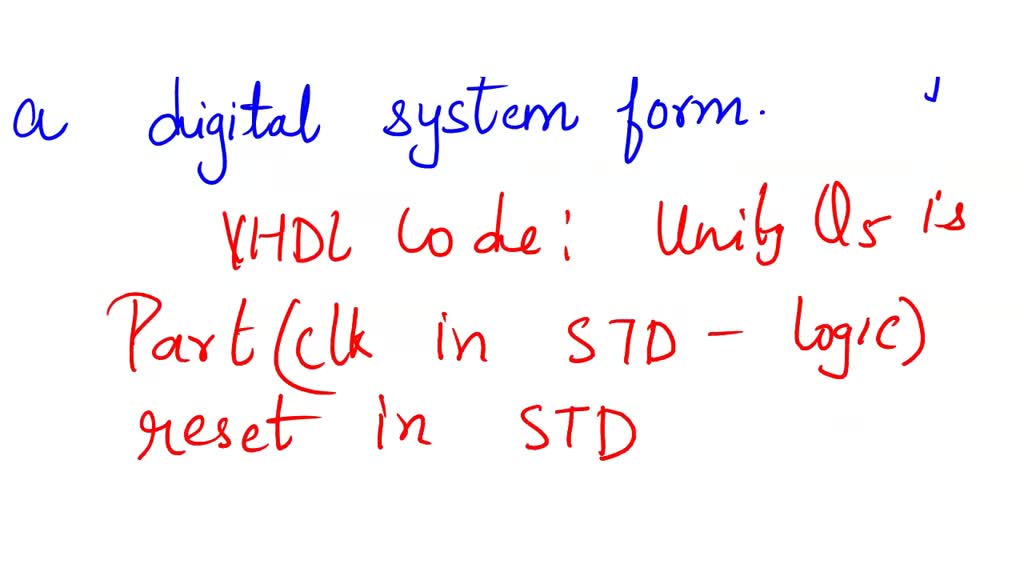 a digital system form.
VHDL Code: Unity Q5 is
Part (clk in STD - logic)
reset in STD